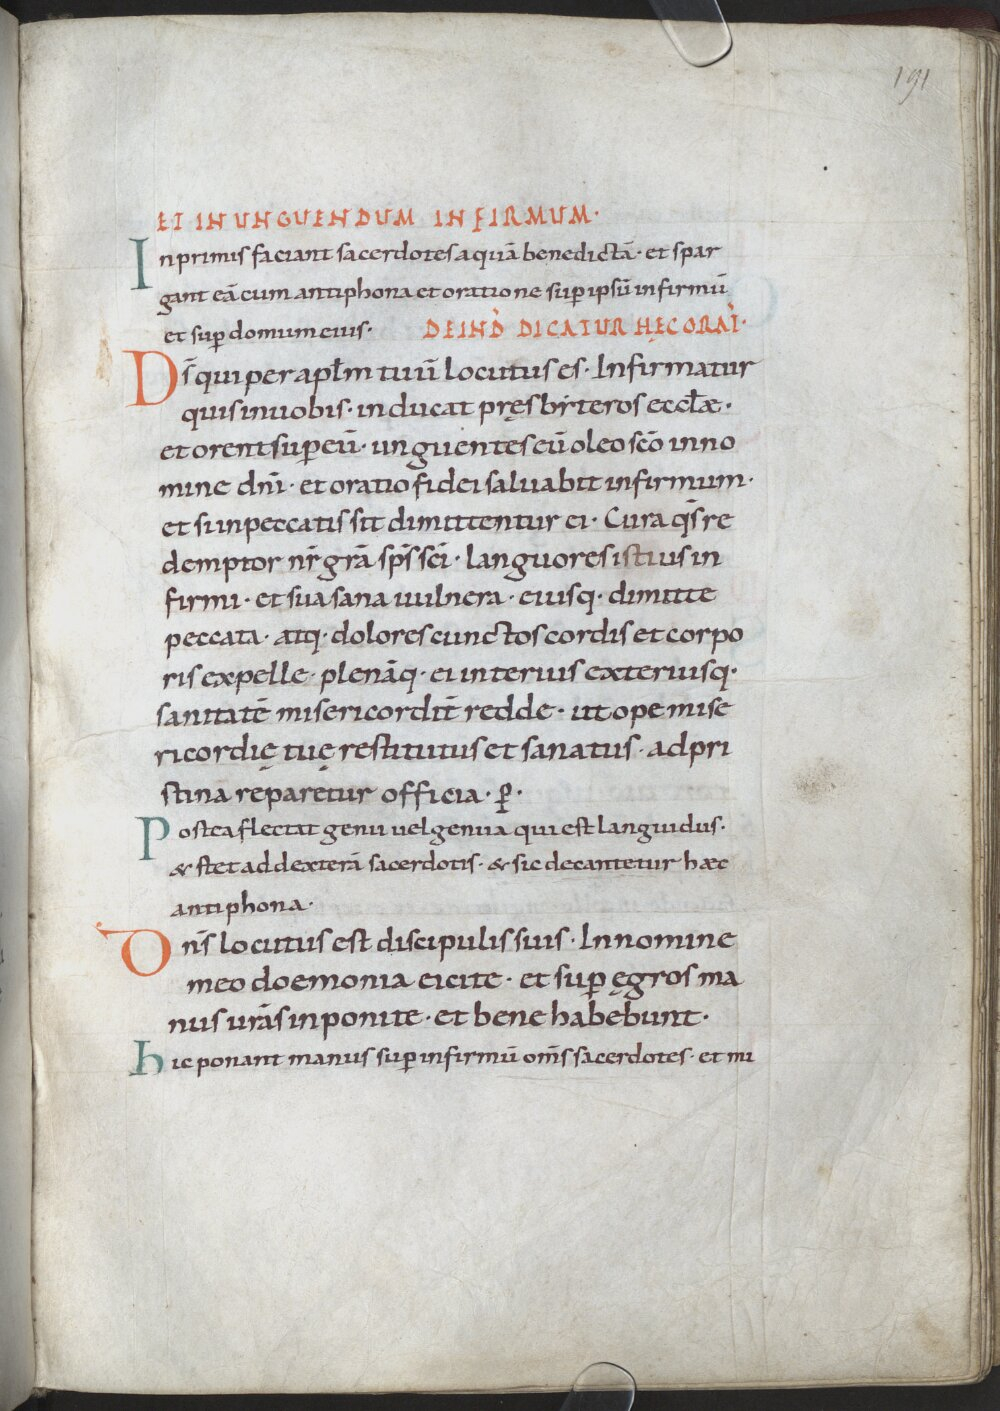 191
ET INUNGUENDUM INFIRMUM·
Inprimis faciant sacerdotes aquā benedictā· et spar
gant eā cum antiphona et oratione sup̄ ipsū infirmū
et sup̄ domum eius· DEIND̀ DICATUR HĘC ORAT̀·
Dr̄ qui per apl̄m tuū locutus es· Infirmatur
quis in uobis· inducat pręsbyteros eccl̄æ·
et orent sup̄ eū· unguentes eū oleo sc̄o in no
mine dn̄i· et oratio fidei saluabit infirmum·
et si in peccatis sit dimittentur ei· Cura qs̄ re
demptor nr̄ grā sp̄s sc̄i· languores istius in
firmi· et sua sana uulnera· eiusq· dimitte
peccata· atq· dolores cunctos cordis et corpo
ris expelle· plenāq· ei interius exteriusq·
sanitatē misericordit̄ redde· ut ope mise
ricordię tuę restitutus et sanatus· ad pri
stina reparetur officia· p̄·
Postea flectat genu uel genua qui est languidus·
& stet ad dexterā sacerdotis· & sic decantetur hæc
antiphona·
Dn̄s locutus est discipulis suis· In nomine
meo doemonia eicite· et sup̄ ęgros ma
nus urās inponite· et bene habebunt·
hic ponant manus sup̄ infirmū om̄s sacerdotes· et mi